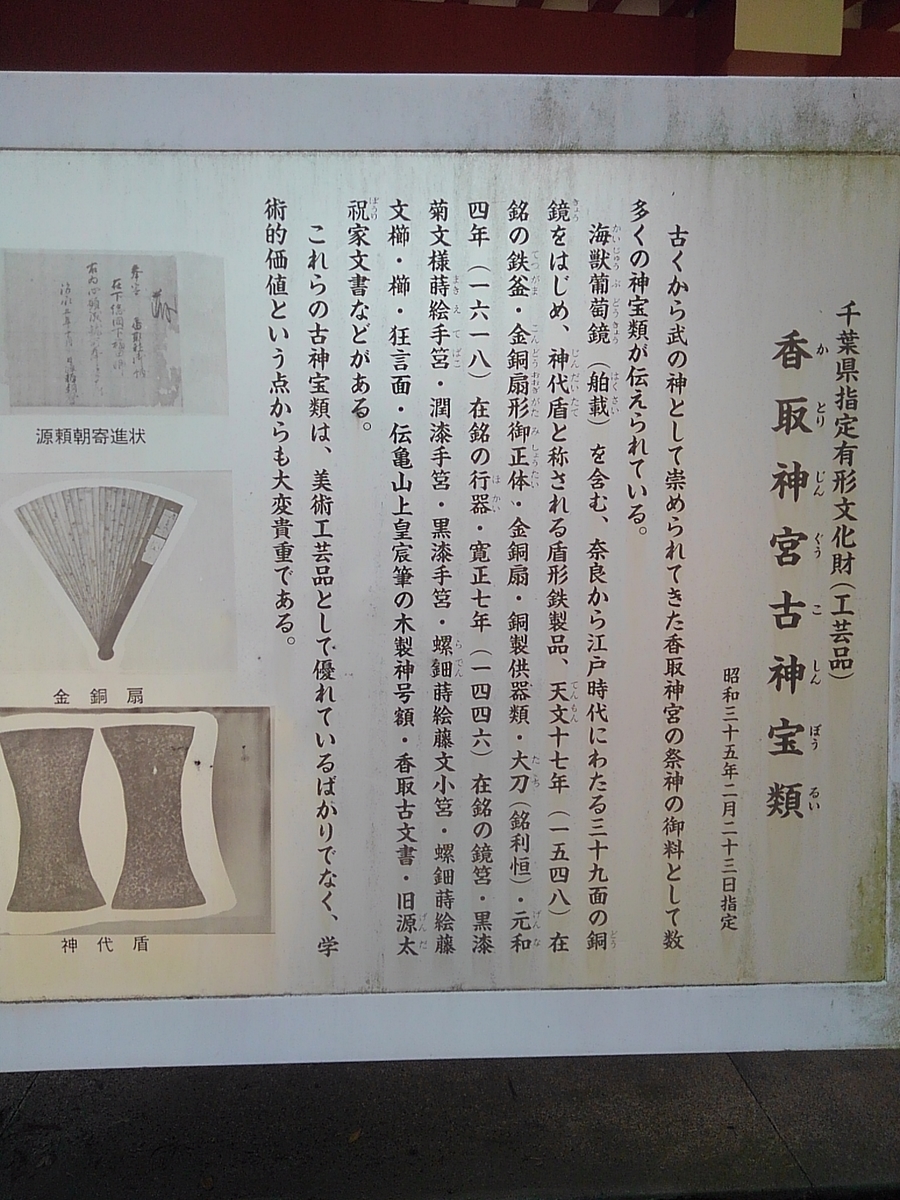 千葉県指定有形文化財(工芸品)
香取神宮古神宝類
か とり じん ぐう こ しん ぼう るい
昭和三十五年二月二十三日指定
古くから武の神として崇められてきた香取神宮の祭神の御料として数
多くの神宝類が伝えられている。
海獣葡萄鏡(舶載)を含む、奈良から江戸時代にわたる三十九面の銅
鏡をはじめ、神代盾と称される盾形鉄製品、天文十七年(一五四八)在
銘の鉄釜・金銅扇形御正体・金銅扇・銅製供器類・大刀(銘利恒)・元和
四年(一六一八)在銘の行器・寛正七年(一四四六)在銘の鏡筥・黒漆
菊文様蒔絵手筥・潤漆手筥・黒漆手筥・螺鈿蒔絵藤文小筥・螺鈿蒔絵藤
文櫛・櫛・狂言面・伝亀山上皇宸筆の木製神号額・香取古文書・旧源太
祝家文書などがある。
これらの古神宝類は、美術工芸品として優れているばかりでなく、学
術的価値という点からも大変貴重である。
源頼朝寄進状
金銅扇
神代盾